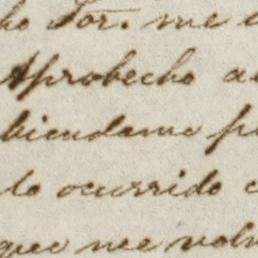 ho Sor. me
Aprobecho
biendame
lo ocurrido
que me volv